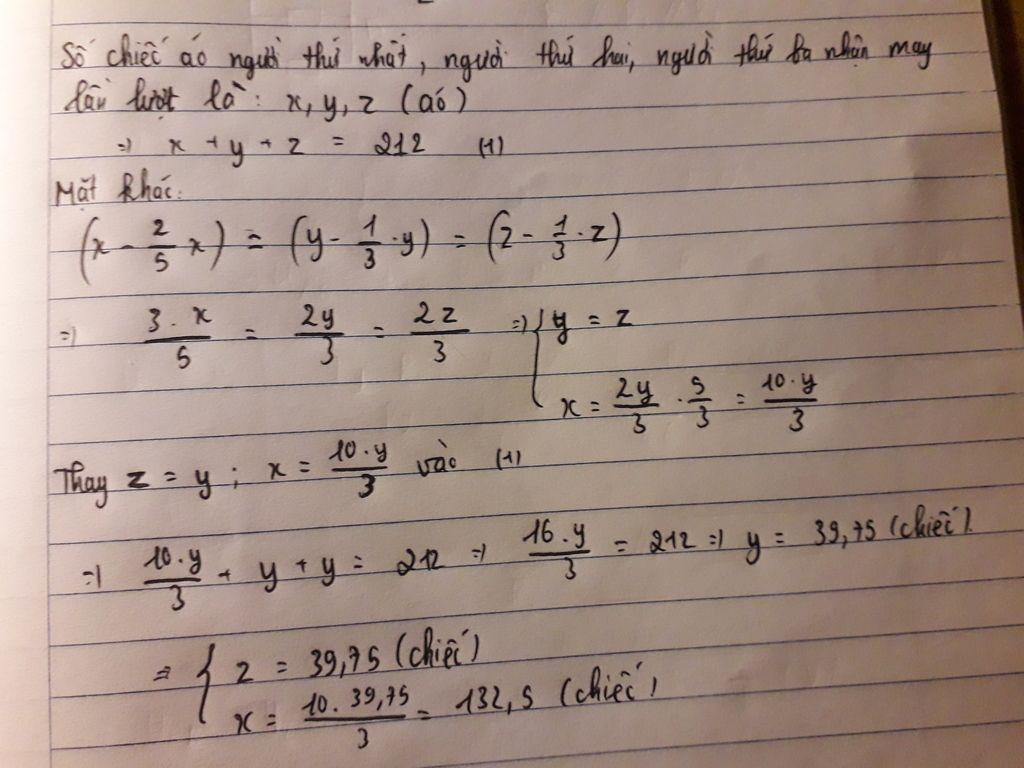 Số chiếc áo người thứ nhất, người thứ hai, người thứ ba nhận may
lần lượt là: x, y, z (áo)
=> x + y + z = 212 (1)
Mặt khác:
(x - 2/5 x) = (y - 1/3 . y) = (z - 1/3 . z)
=> 3 . x / 5 = 2y / 3 = 2z / 3 => { y = z
x = 2y / 3 . 5 / 3 = 10 . y / 3
Thay z = y ; x = 10 . y / 3 vào (1)
=> 10 . y / 3 + y + y = 212 => 16 . y / 3 = 212 => y = 39,75 (chiếc).
=> { z = 39,75 (chiếc)
x = 10 . 39,75 / 3 = 132,5 (chiếc)